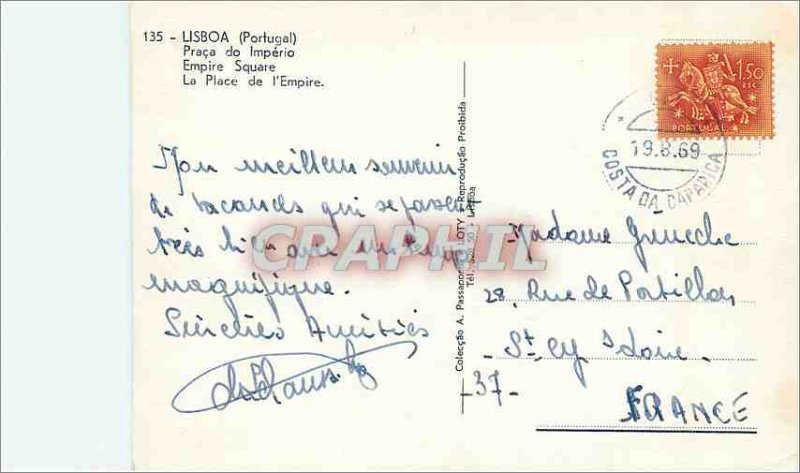 135 - LISBOA (Portugal)
Praça do Império
Empire Square
La Place de l'Empire.
1$50
ESC
PORTUGAL
19.8.69
COSTA DA CAPARICA
Mon meilleur souvenir
de vacances qui se passent
très bien avec un temps
magnifique.
Sincères Amitiés
Colecção A. Passaporte - LOTY - Reprodução Proibida
Lisboa
CPAPHIL
Madame
28, Rue de
- St. Cyr s/Loire.
- 37 -
FRANCE